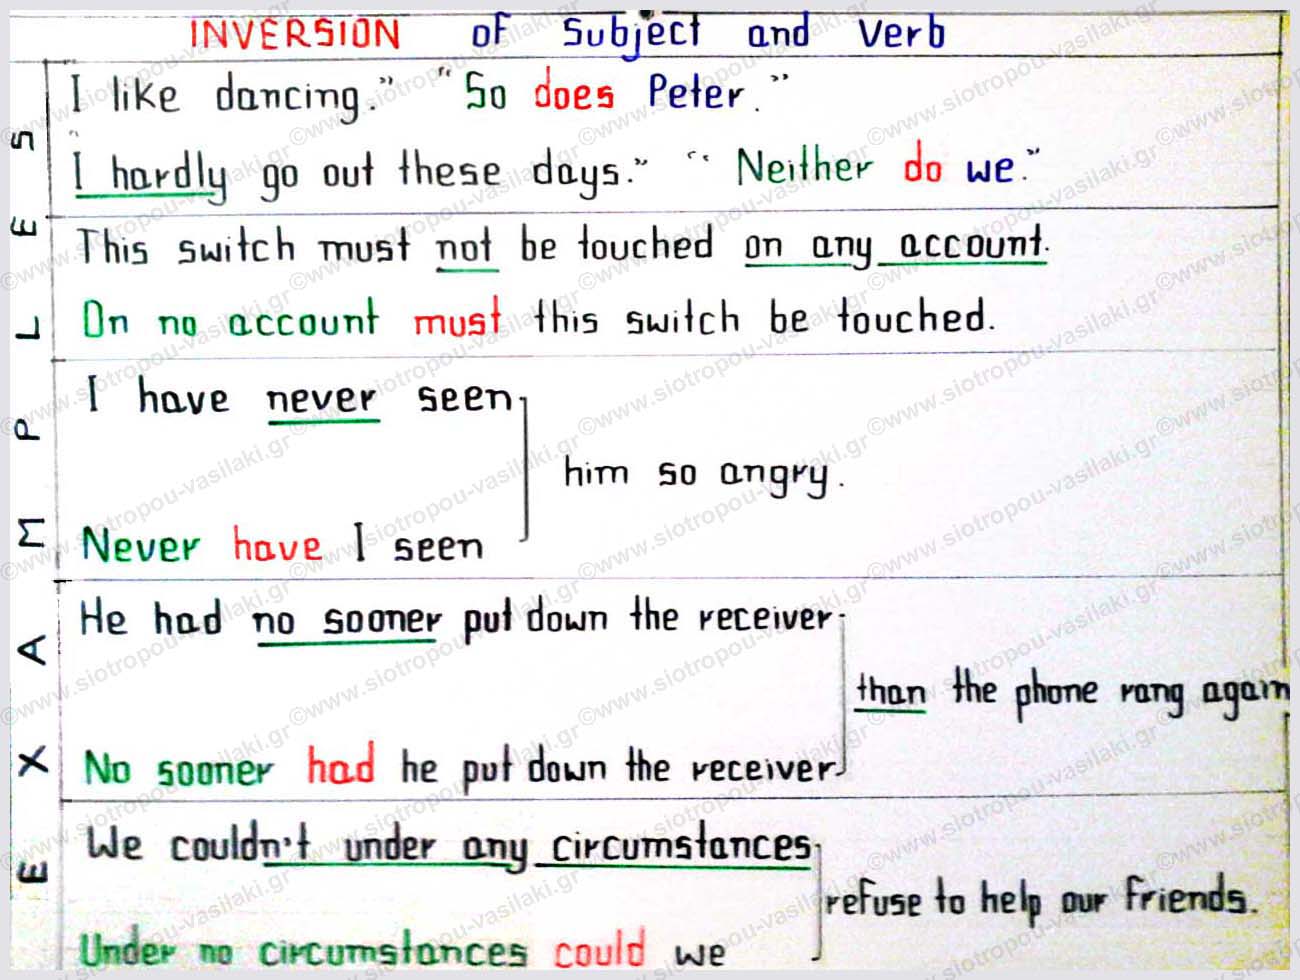 INVERSION of Subject and Verb
I like dancing.” “So does Peter.”
“I hardly go out these days.” “Neither do we.”
This switch must not be touched on any account.
On no account must this switch be touched.
I have never seen
him so angry.
Never have I seen
He had no sooner put down the receiver
than the phone rang again
No sooner had he put down the receiver
We couldn't under any circumstances
refuse to help our friends.
Under no circumstances could we
EXAMPLES
©www.siotropou-vasilaki.gr